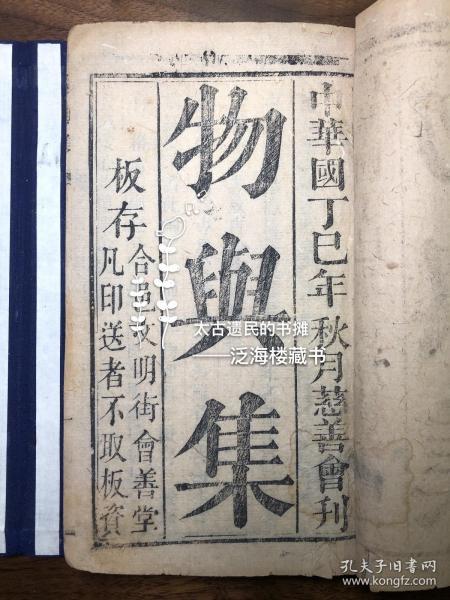 中華國丁巳年 秋月慈善會刊
物與集
板存合邑文明街會善堂
凡印送者不取板資
太古遗民的书摊
——泛海楼藏书
孔夫子旧书网
www.kongfz.com